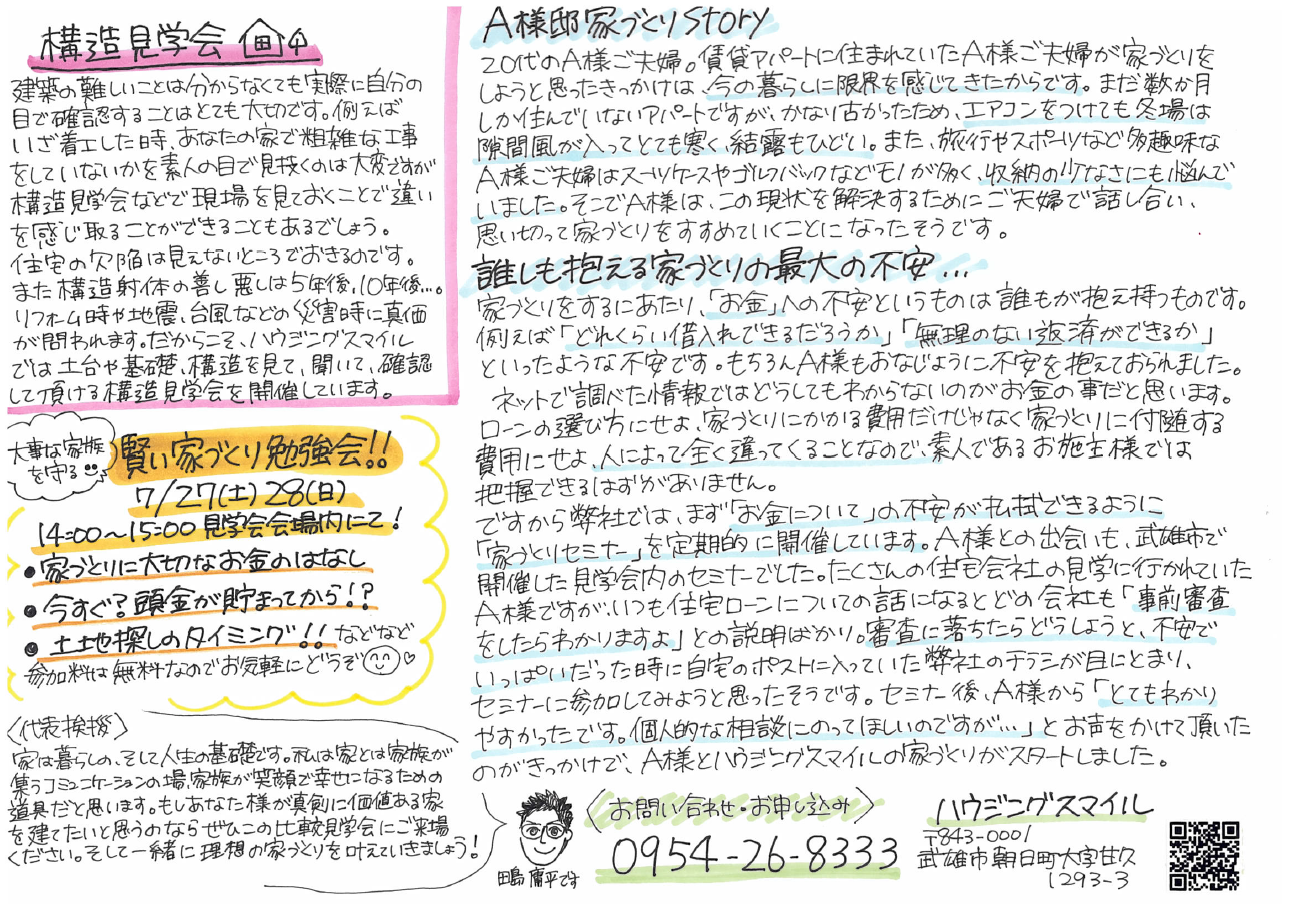 構造見学会
建築の難しいことは分からなくても実際に自分の
目で確認することはとても大切です。例えば
いざ着工した時、あなたの家で粗雑な工事
をしていないかを素人の目で見抜くのは大変ですが
構造見学会などで現場を見ておくことで違い
を感じ取ることができることもあるでしょう。
住宅の欠陥は見えないところでおきるのです。
また構造射体の善し悪しは5年後、10年後…。
リフォーム時や地震、台風などの災害時に真価
が問われます。だからこそ、ハウジングスマイル
では土台や基礎、構造を見て、聞いて、確認
して頂ける構造見学会を開催しています。
大事な家族
を守る
賢い家づくり勉強会!!
7/27(土) 28(日)
14:00~15:00 見学会会場内にて!
• 家づくりに大切なお金のはなし
• 今すぐ?頭金が貯まってから!?
• 土地探しのタイミング!! などなど
参加料は無料なのでお気軽にどうぞ
〈代表挨拶〉
家は暮らしの、そして人生の基礎です。私は家とは家族が
集うコミュニケーションの場、家族が笑顔で幸せになるための
道具だと思います。もしあなた様が真剣に価値ある家
を建てたいと思うのならぜひこの比較見学会にご来場
ください。そして一緒に理想の家づくりを叶えていきましょう!
A様邸家づくりStory
20代のA様ご夫婦。賃貸アパートに住まれていたA様ご夫婦が家づくりを
しようと思ったきっかけは、今の暮らしに限界を感じてきたからです。まだ数か月
しか住んでいないアパートですが、かない古かったため、エアコンをつけても冬場は
隙間風が入ってとても寒く、結露もひどい。また、旅行やスポーツなど多趣味な
A様ご夫婦はスーツケースやゴルフバックなどモノが多く、収納の少なさにも悩んで
いました。そこでA様は、この現状を解決するためにご夫婦で話し合い、
思い切って家づくりをすすめていくことになったそうです。
誰しも抱える家づくりの最大の不安…
家づくりをするにあたり、「お金」への不安というものは誰もが抱え持つものです。
例えば「どれくらい借入れできるだろうか」「無理のない返済ができるか」
といったような不安です。もちろんA様もおなじように不安を抱えておられました。
ネットで調べた情報ではどうしてもわからないのがお金の事だと思います。
ローンの選び方にせよ、家づくりにかかる費用だけじゃなく家づくりに付随する
費用にせよ、人によって全く違ってくることなので、素人であるお施主様では
把握できるはずがありません。
ですから弊社では、まず「お金について」の不安が払拭できるように
「家づくりセミナー」を定期的に開催しています。A様との出会いも、武雄市で
開催した見学会内のセミナーでした。たくさんの住宅会社の見学に行かれていた
A様ですが、いつも住宅ローンについての話になるとどの会社も「事前審査
をしたらわかりますよ」との説明ばかり。審査に落ちたらどうしようと、不安で
いっぱいだった時に自宅のポストに入っていた弊社のチラシが目にとまり、
セミナーに参加してみようと思ったそうです。セミナー後、A様から「とてもわかり
やすかったです。個人的な相談にのってほしいのですが…」とお声をかけて頂いた
のがきっかけで、A様とハウジングスマイルの家づくりがスタートしました。
田島庸平です
〈お問い合わせ・お申し込み〉
0954-26-8333
ハウジングスマイル
〒843-0001
武雄市朝日町大字甘久
1293-3